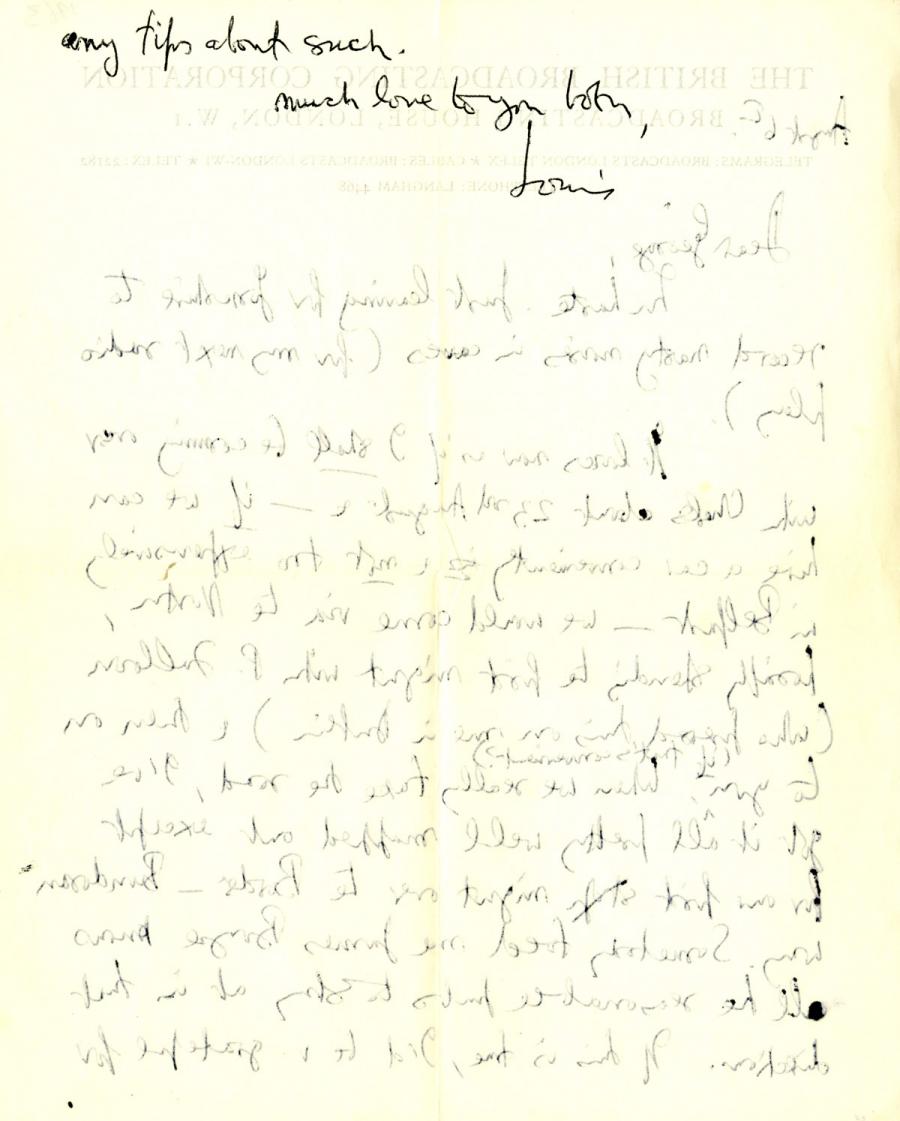 any tips about such.
much love to you both,
Louis
THE BRITISH BROADCASTING CORPORATION
BROADCASTING HOUSE, LONDON, W.1
TELEGRAMS: BROADCASTS LONDON TELEX ★ CABLES: BROADCASTS LONDON-W1 ★ TELEX: 22182
PHONE: LANGHAM 4468
August 6
Dear George,
In haste. Just leaving for Yorkshire to
record nasty noises in caves (for my next radio
play).
It looks now as if I shall be coming over
with about 23rd August & — if we can
hire a car conveniently & not too expensively
in Belfast — we would come via the North,
possibly spending the first night with P.
(who me in Dublin) & then on
to you (if that's convenient?).
When we really take the road, I've
got it all pretty well mapped out except
for our first stop night over the Border — Bundoran
way. Somebody told me James Boyce knows
all the reasonable pubs to stay at in that
direction. If this is true, I'd be v. grateful for